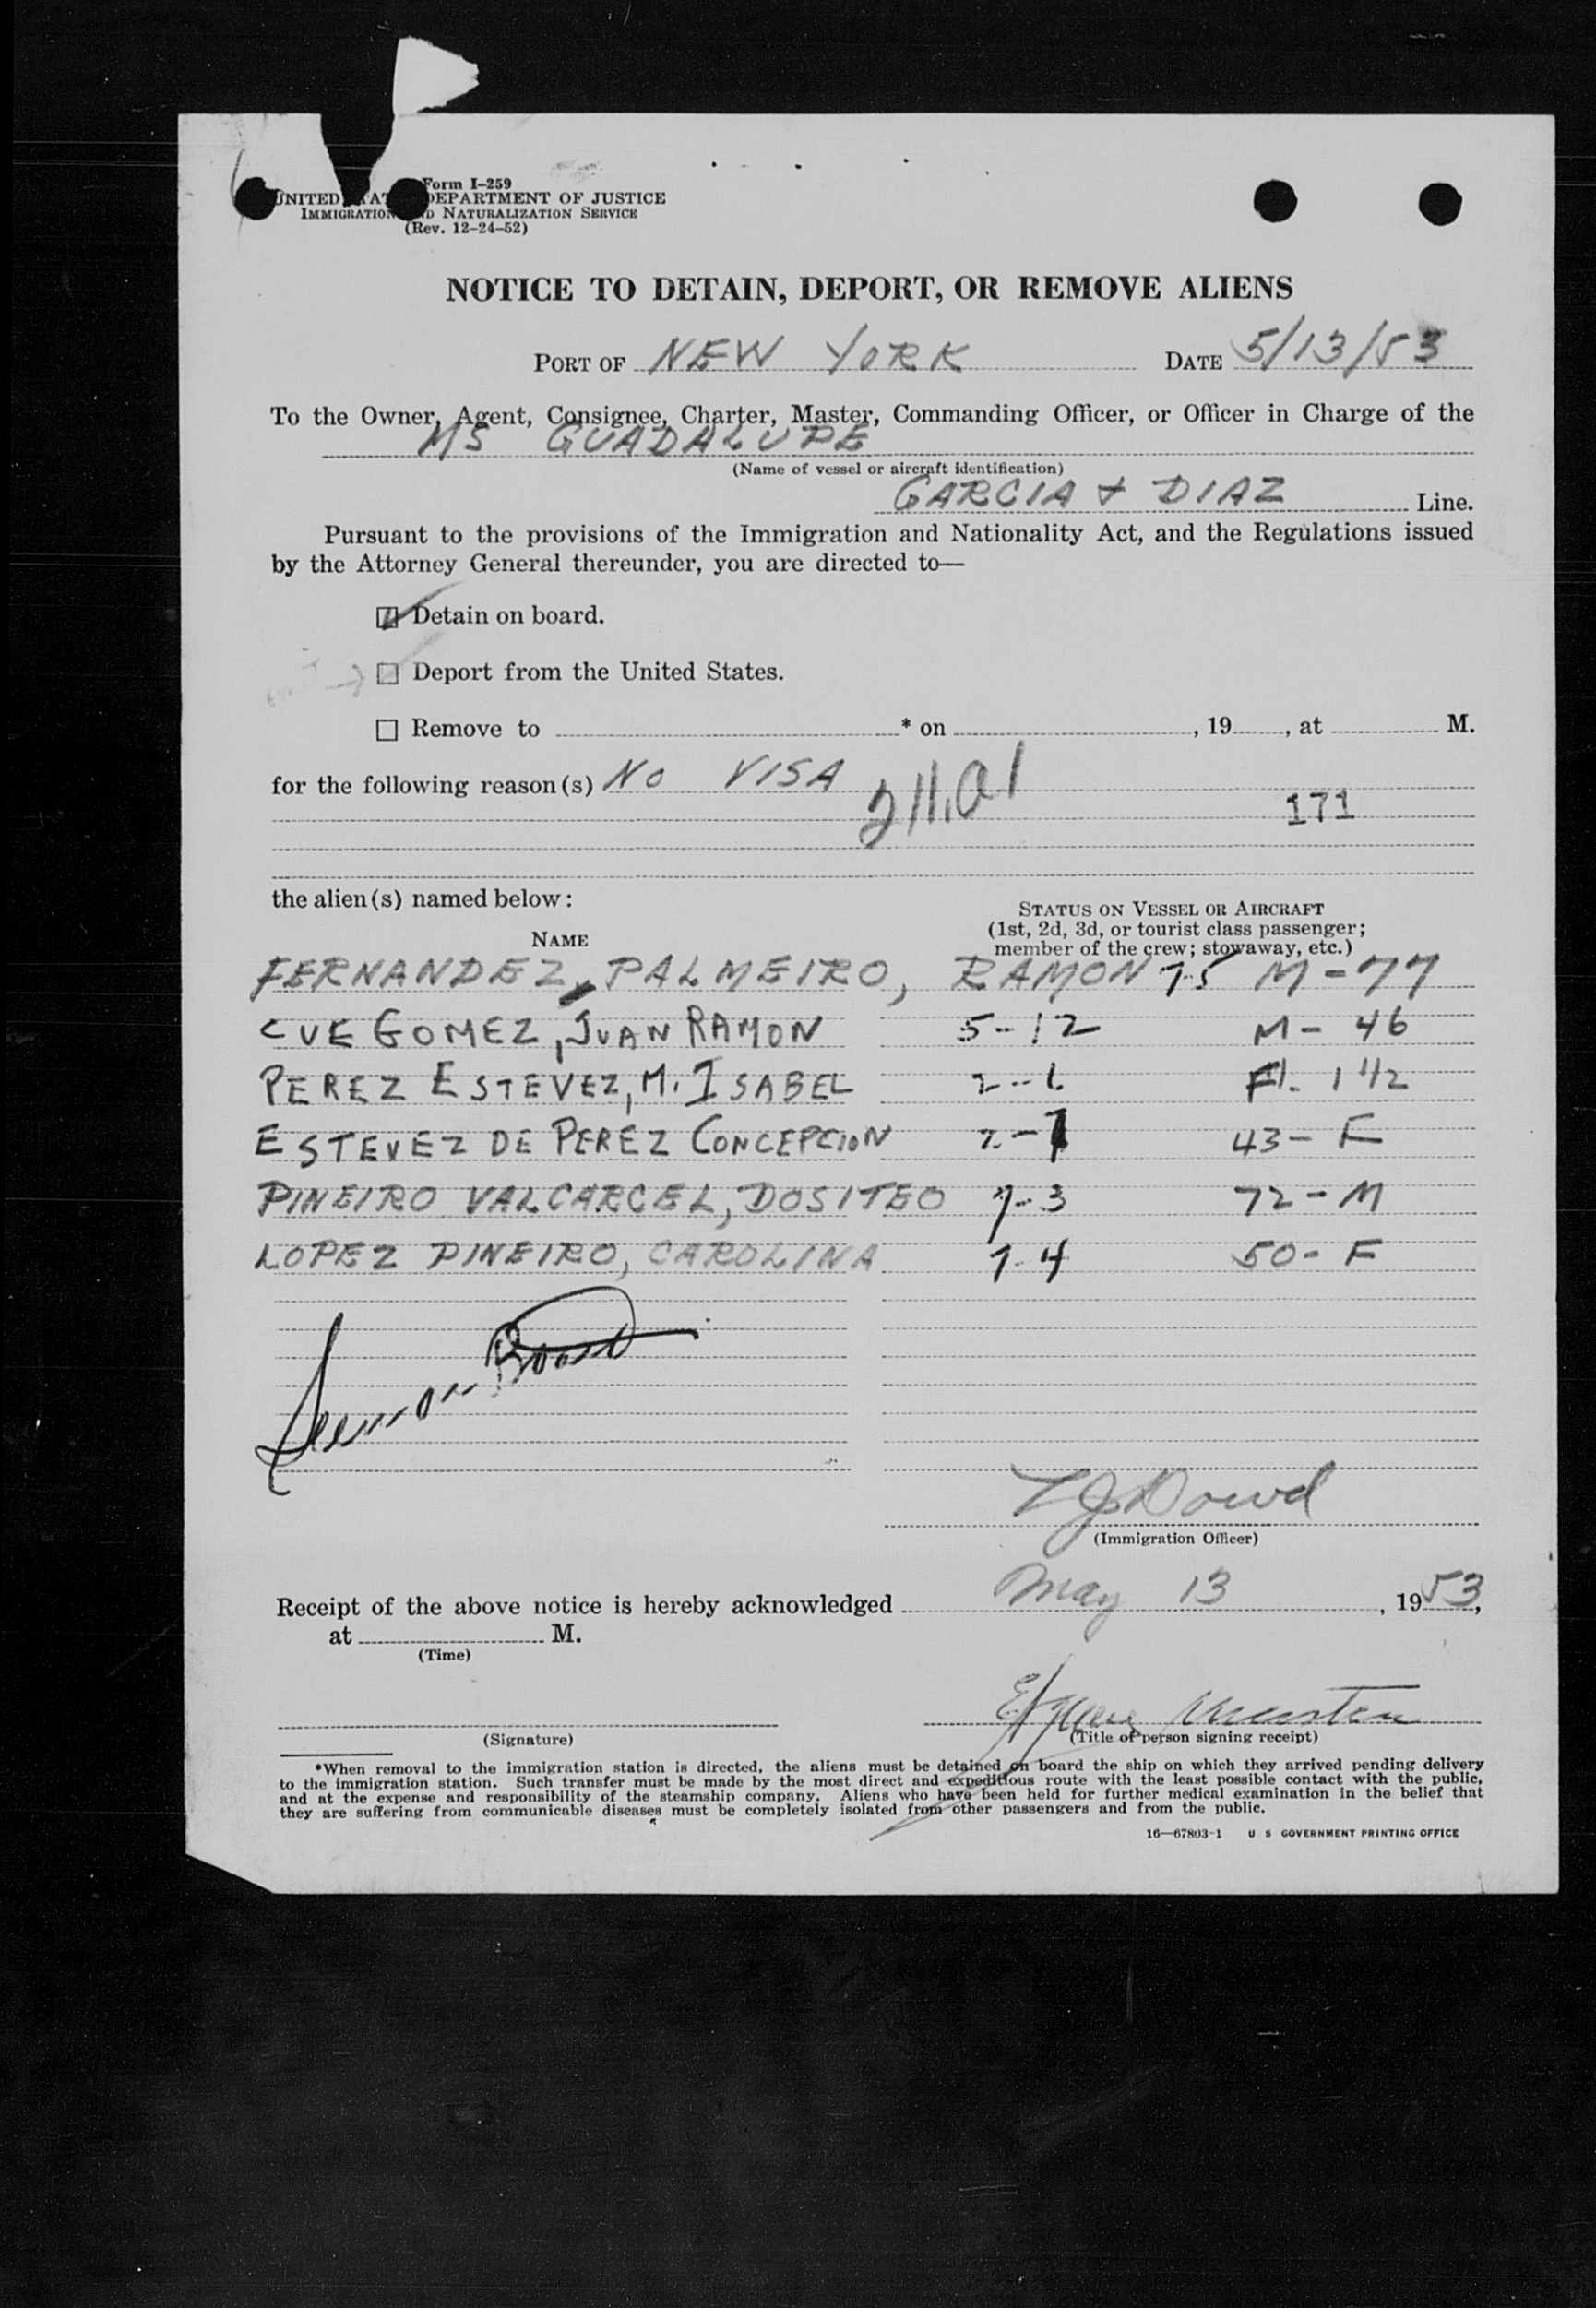 Form I-259
UNITED STATES DEPARTMENT OF JUSTICE
IMMIGRATION AND NATURALIZATION SERVICE
(Rev. 12-24-52)
NOTICE TO DETAIN, DEPORT, OR REMOVE ALIENS
PORT OF NEW YORK DATE 5/13/53
To the Owner, Agent, Consignee, Charter, Master, Commanding Officer, or Officer in Charge of the
MS GUADALUPE
(Name of vessel or aircraft identification)
GARCIA + DIAZ Line.
Pursuant to the provisions of the Immigration and Nationality Act, and the Regulations issued
by the Attorney General thereunder, you are directed to—
Detain on board.
Deport from the United States.
Remove to * on , 19 , at M.
for the following reason(s) NO VISA 211.a1
171
the alien(s) named below:
STATUS ON VESSEL OR AIRCRAFT
(1st, 2d, 3d, or tourist class passenger;
NAME member of the crew; stowaway, etc.)
FERNANDEZ, PALMEIRO, RAMON 7-5 M-77
CUE GOMEZ, JUAN RAMON 5-12 M-46
PEREZ ESTEVEZ, M. ISABEL 2-6 F. 1 1/2
ESTEVEZ DE PEREZ CONCEPCION 2-7 43-F
PINEIRO VALCARCEL, DOSITEO 7-3 72-M
LOPEZ PINEIRO, CAROLINA 7-4 50-F
Dowd
(Immigration Officer)
Receipt of the above notice is hereby acknowledged May 13, 1953,
at M.
(Time)
(Signature) (Title of person signing receipt)
*When removal to the immigration station is directed, the aliens must be detained on board the ship on which they arrived pending delivery
to the immigration station. Such transfer must be made by the most direct and expeditious route with the least possible contact with the public,
and at the expense and responsibility of the steamship company. Aliens who have been held for further medical examination in the belief that
they are suffering from communicable diseases must be completely isolated from other passengers and from the public.
16—67803-1 U S GOVERNMENT PRINTING OFFICE